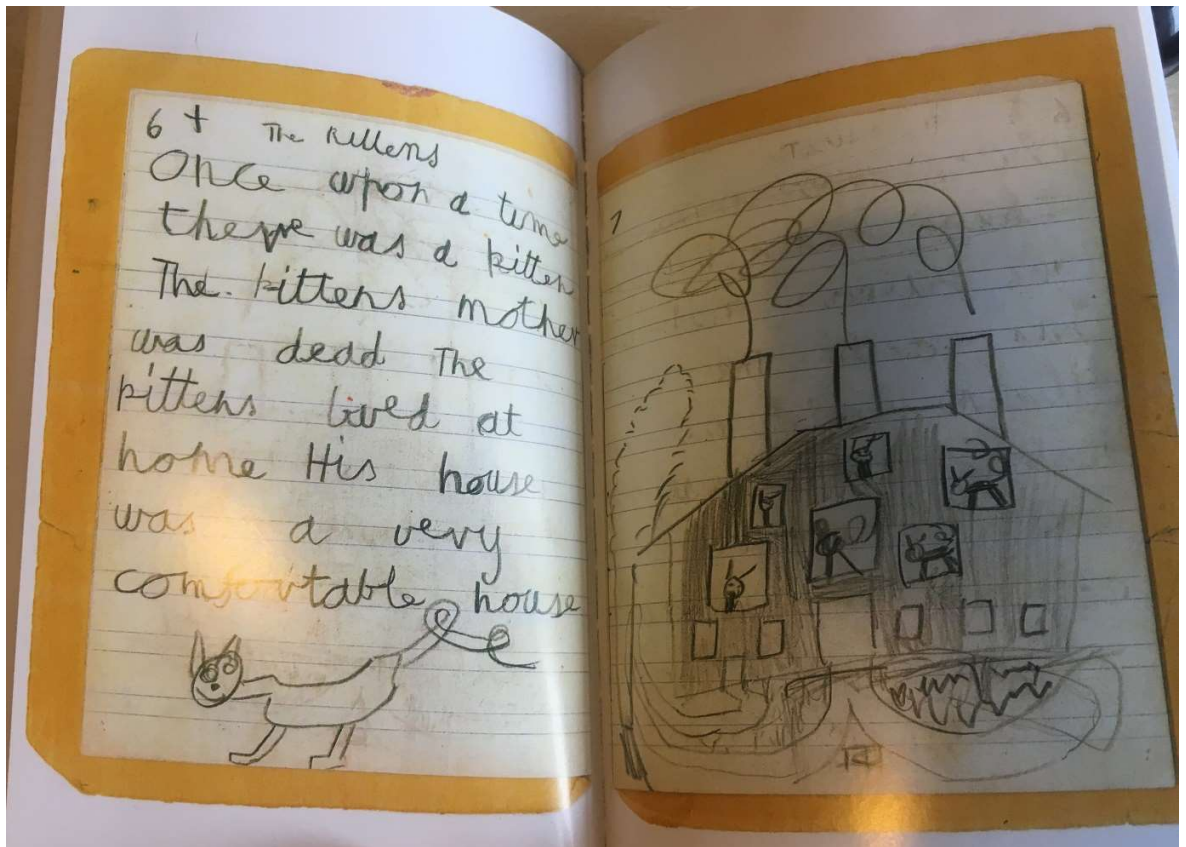 6 + The Kittens
Once upon a time
there was a kitten
The kittens mother
was dead The
kittens lived at
home His house
was a very
comfortable house
7